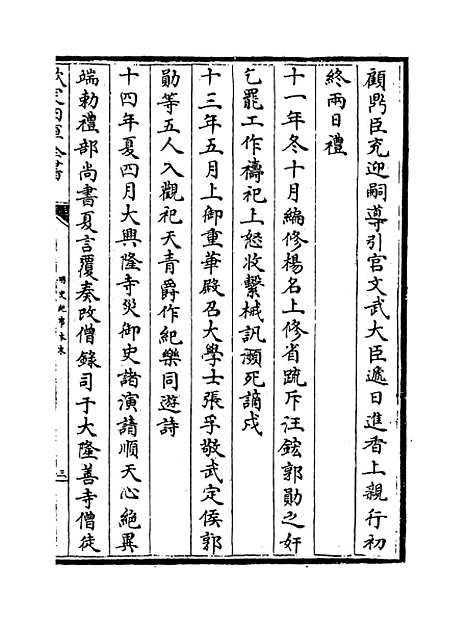 顧鼎臣充迎嗣導引官文武大臣遞日進香上親行初
終兩日禮
十一年冬十月編修楊名上修省疏斥汪鋐郭勛之奸
乞罷工作禱祀上怒收繫械訊瀕死謫戍
十三年五月上御重華殿召大學士張孚敬武定侯郭
勛等五人入觀祀天青爵作紀樂同遊詩
十四年夏四月大興隆寺災御史諸演請順天心絶異
端勅禮部尚書夏言覆奏改僧錄司于大隆善寺僧徒
欽定四庫全書
明史紀事本末
三